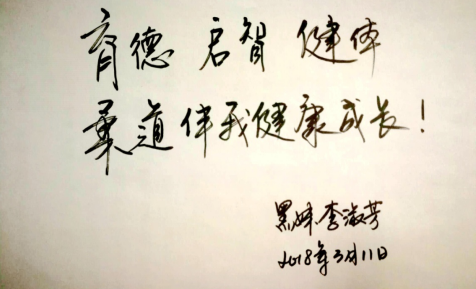 育德 启智 健体
柔道伴我健康成长！
黑妹李淑芳
2018年3月11日